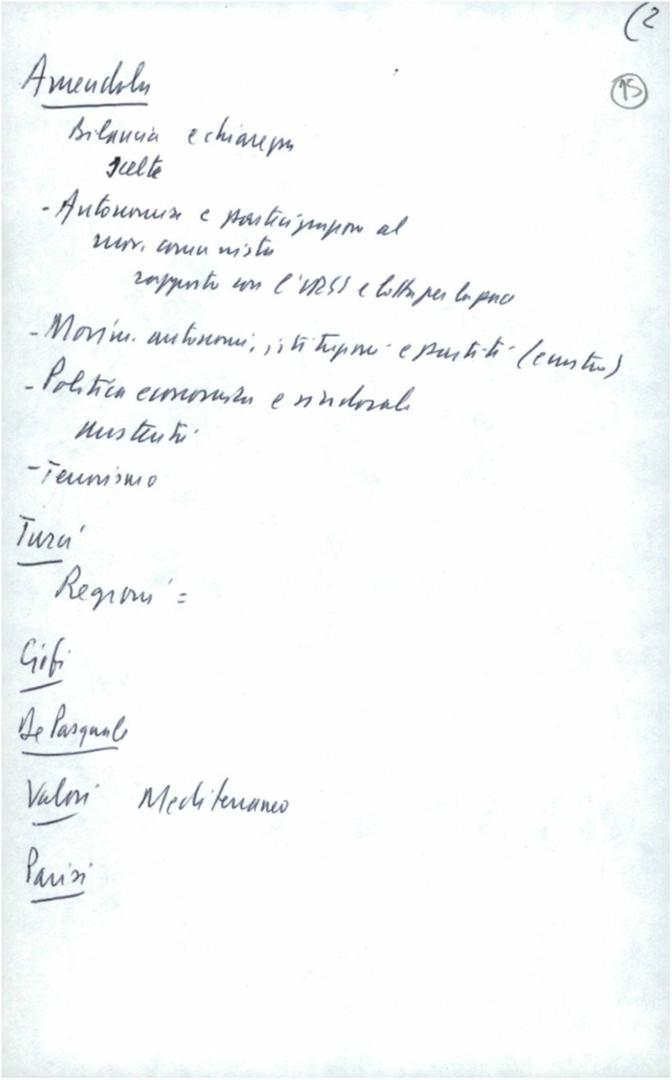 (2
15
Amendola
Bilancia e chiarezza
scelte
- Autonomia e partecipazione al
mov. comunista
rapporto con l'URSS e lotta per la pace
- Movim. autonomi, istituzioni e partiti
- Politica economica e sindacale
- Terrorismo
Turci
Regioni =
De Pasquale
Valori Mediterraneo
Parisi